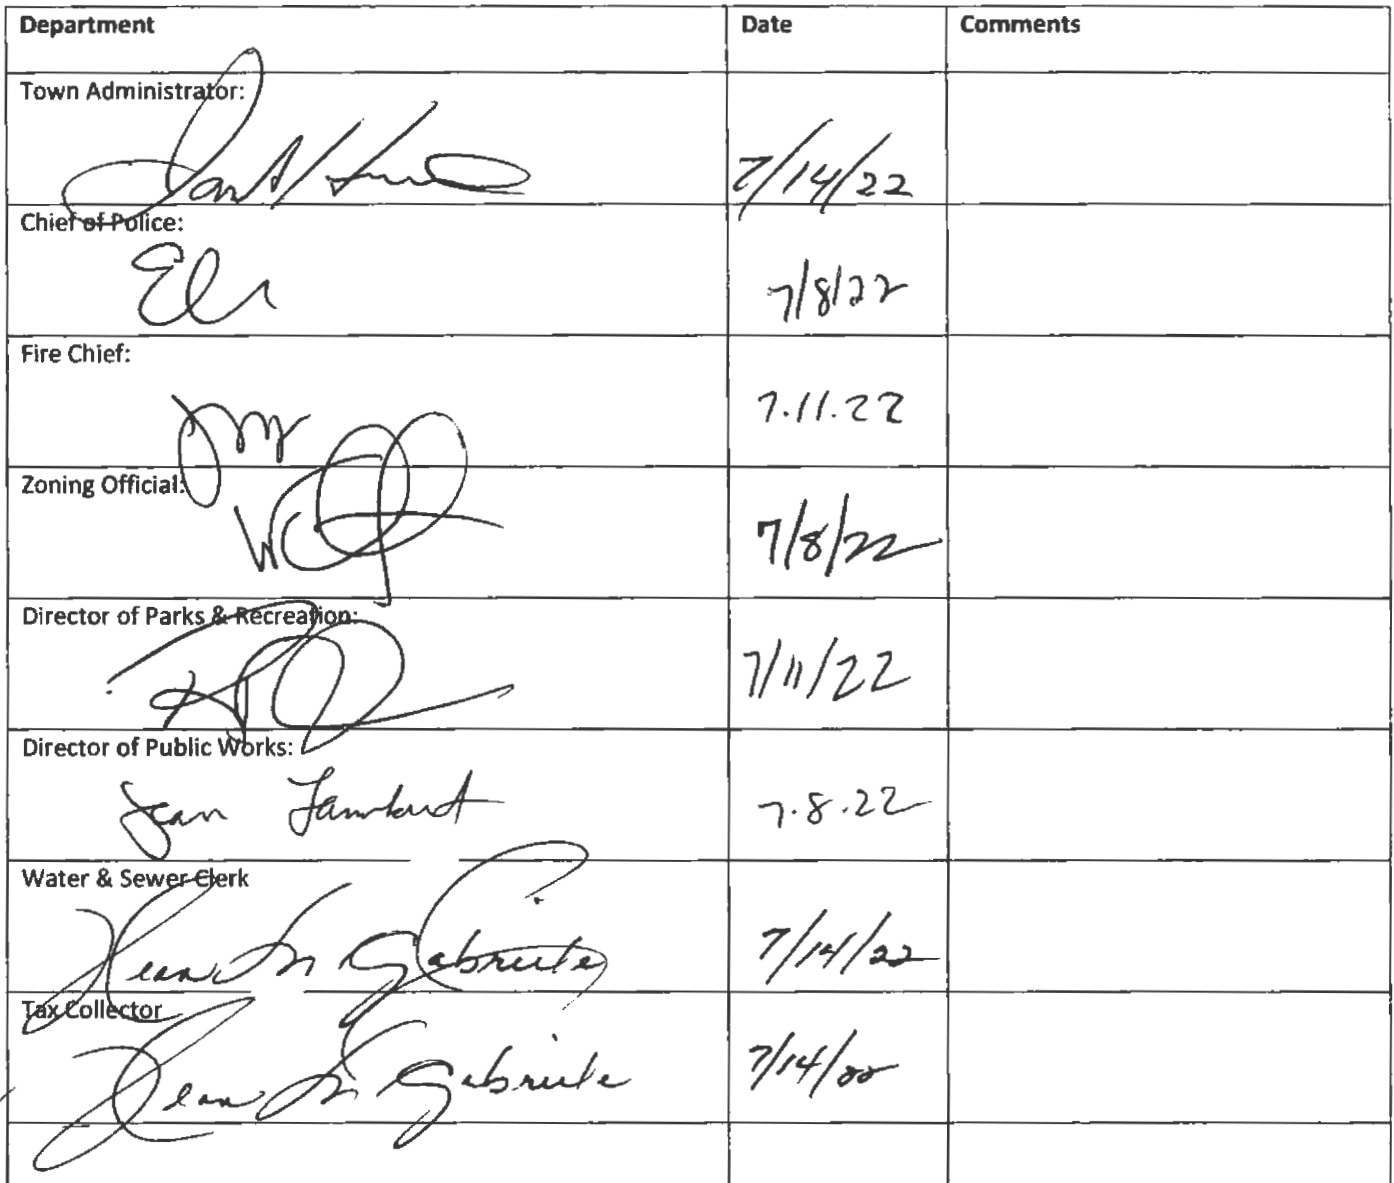 Department Date Comments
Town Administrator:
7/14/22
Chief of Police:
7/8/22
Fire Chief:
7.11.22
Zoning Official:
7/8/22
Director of Parks & Recreation:
7/11/22
Director of Public Works:
Jean Lambert 7.8.22
Water & Sewer Clerk
Jean M Gabriele 7/14/22
Tax Collector
Jean M Gabriele 7/14/22